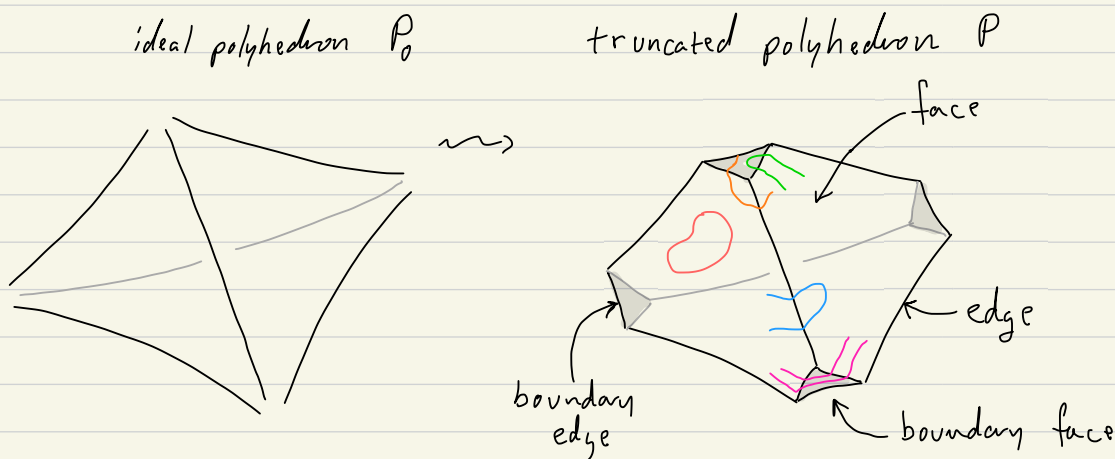 ideal polyhedron P₀
truncated polyhedron P
face
edge
boundary
edge
boundary face